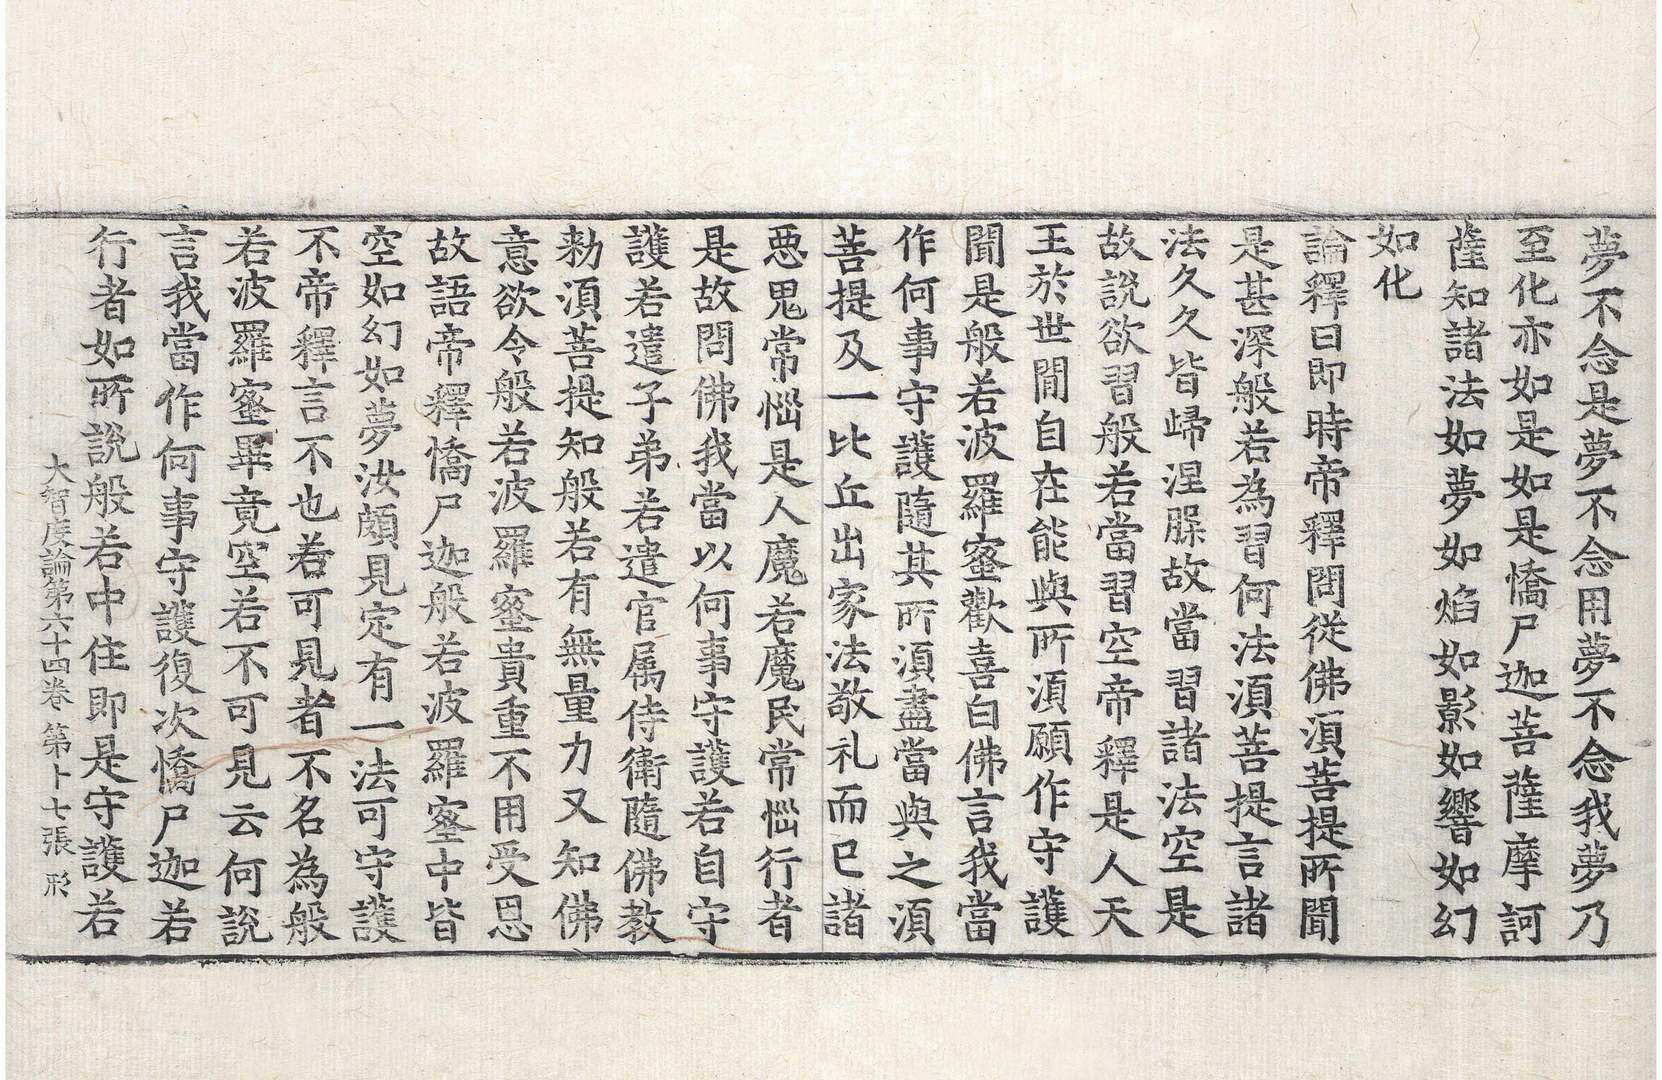 夢不念是夢不念用夢不念我夢乃
至化亦如是如是憍尸迦菩薩摩訶
薩知諸法如夢如焰如影如響如幻
如化
論釋曰即時帝釋問從佛湏菩提所聞
是甚深般若為習何法湏菩提言諸
法久久皆歸涅槃故當習諸法空是
故說欲習般若當習空帝釋是人天
王於世間自在能與所湏願作守護
聞是般若波羅蜜歡喜白佛言我當
作何事守護隨其所湏盡當與之湏
菩提及一比丘出家法敬礼而已諸
惡鬼常惱是人魔若魔民常惱行者
是故問佛我當以何事守護若自守
護若遣子弟若遣官属侍衛隨佛教
勑湏菩提知般若有無量力又知佛
意欲令般若波羅蜜貴重不用受恩
故語帝釋憍尸迦般若波羅蜜中皆
空如幻如夢汝頗見定有一法可守護
不帝釋言不也若可見者不名為般
若波羅蜜畢竟空若不可見云何說
言我當作何事守護復次憍尸迦若
行者如所說般若中住即是守護若
大智度論第六十四卷 第十七張 形